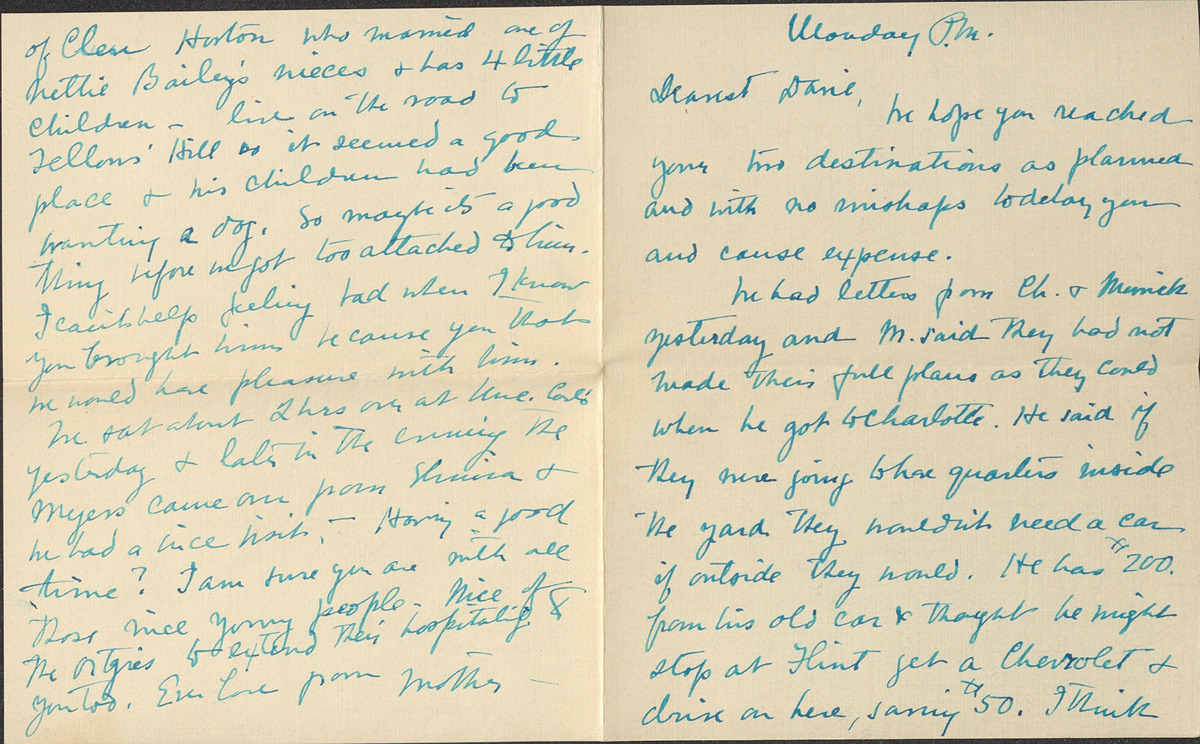 Monday P.M.
Dearest Davie,
We hope you reached
your two destinations as planned
and with no mishaps to delay you
and cause expense.
We had letters from Ch. & Merrick
yesterday and M. said they had not
made their full plans as they could
when he got to Charlotte. He said if
they were going to have quarters inside
the yard they wouldn't need a car
if outside they would. He has $200.
from his old car & thought he might
stop at Flint get a Chevrolet &
drive on here, saving $50. I think
of Clem Horton who married one of
Nettie Bailey's nieces & has 4 little
children – live on the road to
Fellows' Hill so it seemed a good
place & his children had been
wanting a dog. So maybe it's a good
thing before we got too attached to him.
I can't help feeling bad when I know
you brought him because you thot
we would have pleasure with him.
We sat about 2 hrs over at Unc.
yesterday & later in the evening the
Meyers came over from Elmira &
we had a nice visit, – Having a good
time? I am sure you are with all
those nice young people. Nice of
the to extend their hospitality to
you too. Ever love from Mother –